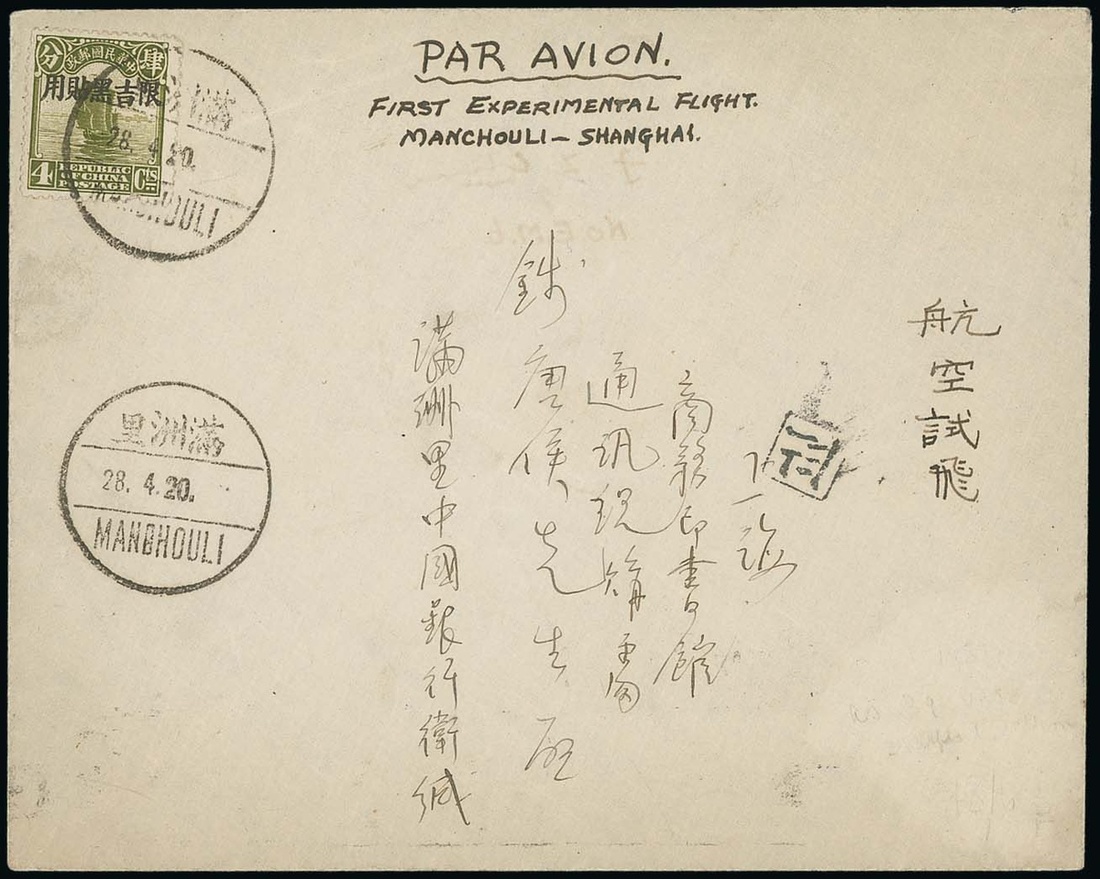 PAR AVION.
FIRST EXPERIMENTAL FLIGHT.
MANCHOULI — SHANGHAI.
政郵國民華中
肆
分
用貼黑吉限
4
CTS
REPUBLIC
OF CHINA
POSTAGE
28. 4 20.
里洲滿
28. 4. 20.
MANCHOULI
航空試飛
上海
商務印書館
通訊現
先生
滿洲里中國銀行衛緘